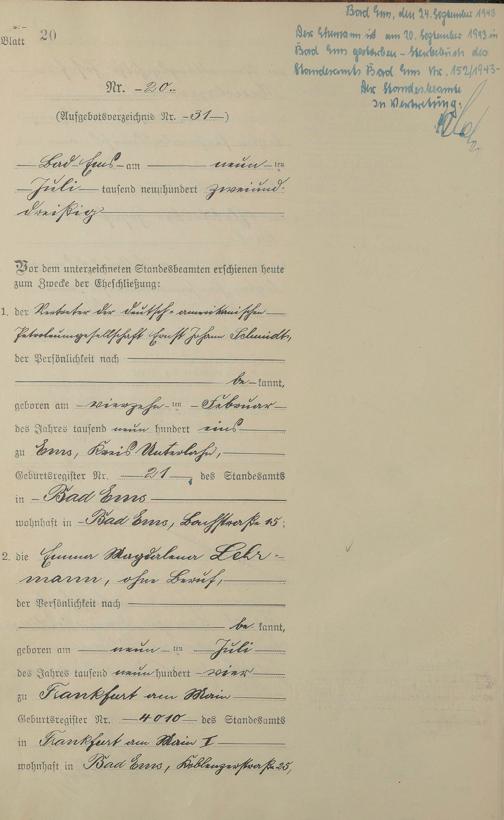 Blatt 20
Bad Ems, den 24. September 1943
Der Ehemann ist am 20. September 1943 in
Bad Ems gestorben - Sterbebuch des
Standesamts Bad Ems Nr. 152/1943-
Der Standesbeamte
In Vertretung:
Nr. 20.
(Aufgebotsverzeichnis Nr. 31)
Bad-Ems am neun ten
Juli tausend neunhundert zweiund-
dreißig
Vor dem unterzeichneten Standesbeamten erschienen heute
zum Zwecke der Eheschließung:
1. der Vertreter der deutsch-amerikanischen
Petroleumgesellschaft Ernst Johann Schmidt,
der Persönlichkeit nach
be kannt,
geboren am vierzehn ten Februar
des Jahres tausend neun hundert eins
zu Ems, Kreis Unterlahn,
Geburtsregister Nr. 21, des Standesamts
in Bad Ems
wohnhaft in Bad Ems, Bachstraße 15;
2. die Emma Magdalena Lehr-
mann, ohne Beruf,
der Persönlichkeit nach
be kannt,
geboren am neun ten Juli
des Jahres tausend neun hundert vier
zu Frankfurt am Main
Geburtsregister Nr. 4010 des Standesamts
in Frankfurt am Main I
wohnhaft in Bad Ems, Koblenzerstraße 25,